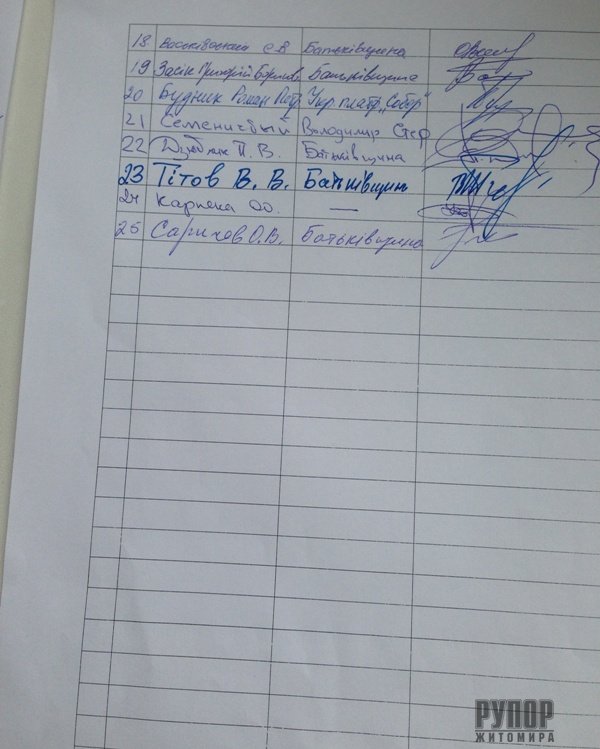 18 С.В. Батьківщина
19 Засік Григорій Батьківщина
20 Будник Роман Петр Укр платф „Собор"
21 Семенистый Володимир Стер
22 П. В. Батьківщина
23 Тітов В. В. Батьківщин
24 Карпека О.О. —
25 О.В. Батьківщина
РУПОР
ЖИТОМИРА